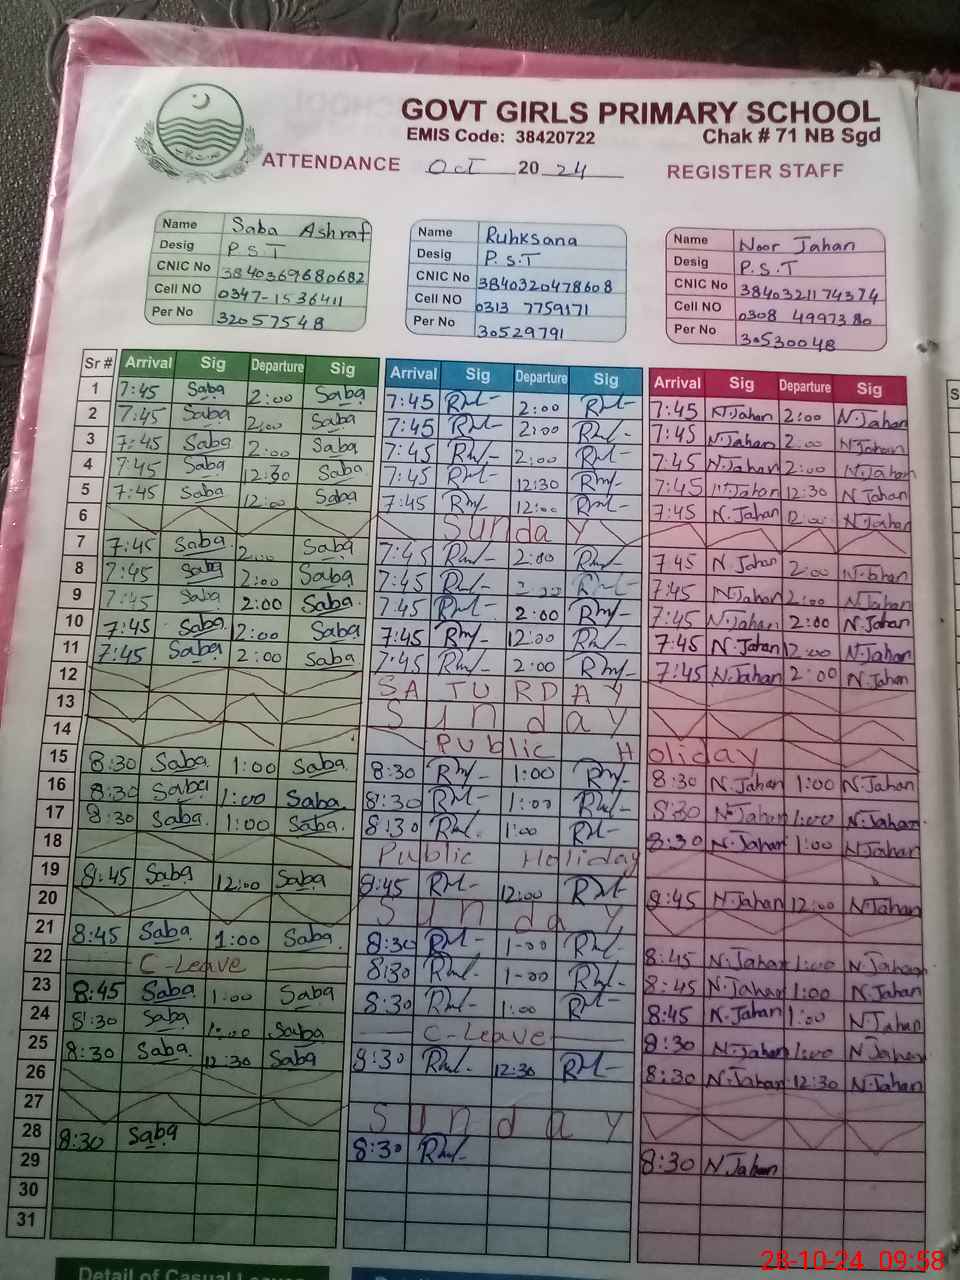 GOVT GIRLS PRIMARY SCHOOL
EMIS Code: 38420722 Chak # 71 NB Sgd
ATTENDANCE Oct 2024 REGISTER STAFF
Name Saba Ashraf
Desig P.S.T
CNIC No 3840369680682
Cell NO 0347-1536411
Per No 32057548
Name Ruhksana
Desig P.S.T
CNIC No 3840320478608
Cell NO 0313 7759171
Per No 30529791
Name Noor Jahan
Desig P.S.T
CNIC No 3840321174374
Cell NO 0308 4997380
Per No 30530048
Sr # Arrival Sig Departure Sig Arrival Sig Departure Sig Arrival Sig Departure Sig
1 7:45 Saba 2:00 Saba 7:45 2:00 7:45 N.Jahan 2:00 N.Jahan
2 7:45 Saba 2:00 Saba 7:45 2:00 7:45 N.Jahan 2:00 N.Jahan
3 7:45 Saba 2:00 Saba 7:45 2:00 7:45 N.Jahan 2:00 N.Jahan
4 7:45 Saba 12:30 Saba 7:45 12:30 7:45 N.Jahan 12:30 N.Jahan
5 7:45 Saba 12:00 Saba 7:45 12:00 7:45 N.Jahan 12:00 N.Jahan
6 Sunday
7 7:45 Saba 2:00 Saba 7:45 2:00 7:45 N.Jahan 2:00 N.Jahan
8 7:45 Saba 2:00 Saba 7:45 7:45 N.Jahan 2:00 N.Jahan
9 7:45 Saba 2:00 Saba 7:45 2:00 7:45 N.Jahan 2:00 N.Jahan
10 7:45 Saba 2:00 Saba 7:45 2:00 7:45 N.Jahan 2:00 N.Jahan
11 7:45 Saba 2:00 Saba 7:45 2:00 7:45 N.Jahan 2:00 N.Jahan
12 SATURDAY
13 Sunday
14 Public Holiday
15 8:30 Saba 1:00 Saba 8:30 1:00 8:30 N.Jahan 1:00 N.Jahan
16 8:30 Saba 1:00 Saba 8:30 1:00 8:30 N.Jahan 1:00 N.Jahan
17 8:30 Saba 1:00 Saba 8:30 1:00 8:30 N.Jahan 1:00 N.Jahan
18 Public Holiday
19 8:45 Saba 12:00 Saba 8:45 12:00 8:45 N.Jahan 12:00 N.Jahan
20 Sunday
21 8:45 Saba 1:00 Saba 8:30 1-00 8:45 N.Jahan 1:00 N.Jahan
22 C-Leave 8:30 1-00 8:45 N.Jahan 1:00 N.Jahan
23 8:45 Saba 1:00 Saba 8:30 1:00 8:45 N.Jahan 1:00 N.Jahan
24 8:30 Saba 1:00 Saba C-Leave 8:30 N.Jahan 1:00 N.Jahan
25 8:30 Saba 12:30 Saba 8:30 12:30 8:30 N.Jahan 12:30 N.Jahan
26
27 Sunday
28 8:30 Saba 8:30 8:30 N.Jahan
29
30
31
Detail of Casual
28-10-24 09:58